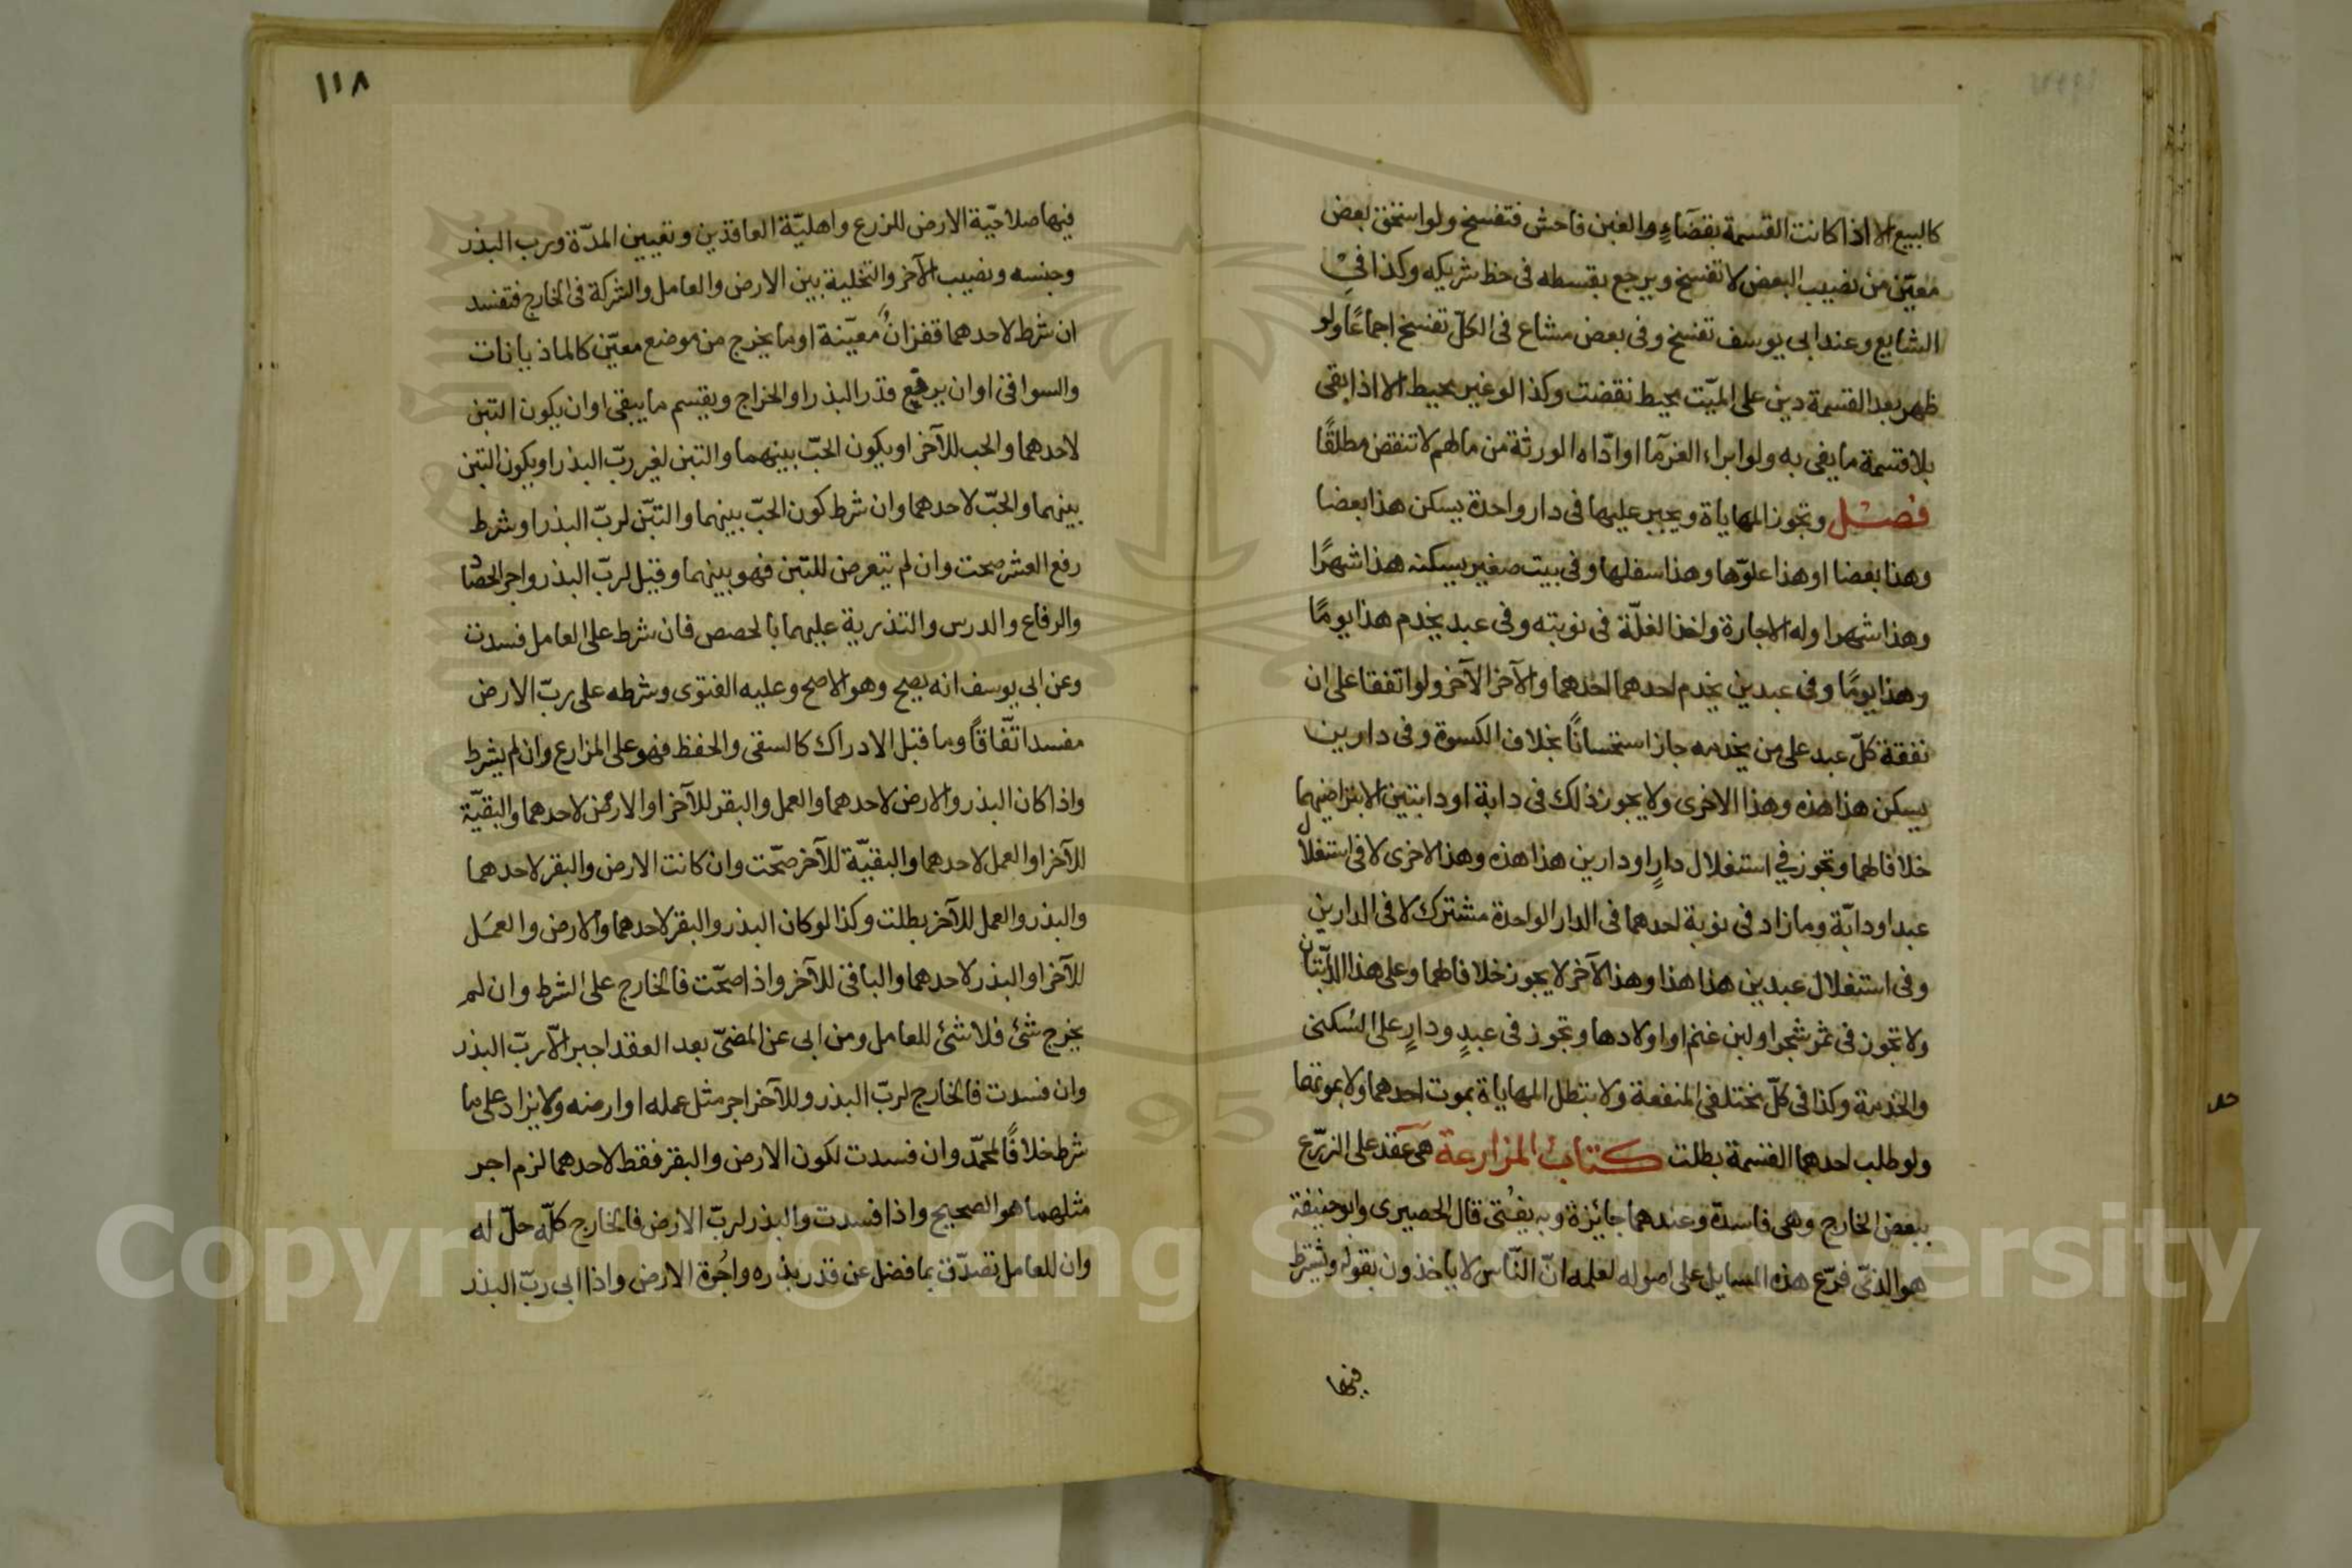 كالبيع الا اذا كانت القسمة بقضآءٍ والغبن فاحش فتفسخ ولو استحق بعض
معيّن من نصيب البعض لا تفسخ ويرجع بقسطه فى حظ شريكه وكذا فى
الشايع وعند ابى يوسف تفسخ وفى بعض مشاع فى الكلّ تفسخ اجماعًا ولو
ظهر بعد القسمة دين على الميّت محيط نقضت وكذا لو غير محيط الا اذا بقى
بلا قسمة ما يفى به ولو ابراء الغرمآ او ادّاه الورثة من مالهم لا تنقض مطلقًا
فصل وتجوز المهاياة ويجبر عليها فى دار واحدة يسكن هذا بعضا
وهذا بعضا او هذا علوّها وهذا سفلها وفى بيت صغير يسكنه هذا شهرًا
وهذا شهرا وله الاجارة واخذ الغلّة فى نوبته وفى عبد يخدم هذا يومًا
وهذا يومًا وفى عبدين يخدم احدهما احدهما والآخر الآخر ولو اتفقا على ان
نفقة كلّ عبد على من يخدمه جاز استحسانًا بخلاف الكسوة وفى دارين
يسكن هذا هذه وهذا الاخرى ولا يجوز ذلك فى دابة او دابتين الا بتراضيهما
خلافا لهما وتجوز في استغلال دارٍ او دارين هذا هذه وهذا الاخرى لا فى استغلال
عبد او دابّة وما زاد فى نوبة احدهما فى الدار الواحدة مشترك لا فى الدارين
وفى استغلال عبدين هذا هذا وهذا الآخر لا يجوز خلافا لهما وعلى هذا الدابّتان
ولا تجوز فى ثمر شجر او لبن غنم او اولادها وتجوز فى عبدٍ ودارٍ على السُكنى
والخدمة وكذا فى كلّ مختلفى المنفعة ولا تبطل المهاياة بموت احدهما ولا بموتهما
ولو طلب احدهما القسمة بطلت كتاب المزارعة هى عقد على الزرع
ببعض الخارج وهى فاسدة وعندهما جائزة وبه يفتى قال الحصيرى وابو حنيفة
هو الذى فرّع هذه المسايل على اصوله لعلمه انّ النّاس لا ياخذون بقوله ويشترط
فيها
١١٨
فيها صلاحيّة الارض للزرع واهليّة العاقدين وتعيين المدّة ورب البذر
وجنسه ونصيب الآخر والتخلية بين الارض والعامل والشركة فى الخارج فتفسد
ان شرط لاحدهما قفزانٌ معيّنة او ما يخرج من موضع معيّن كالماذيانات
والسواقى او ان يرفع قدر البذر او الخراج ويقسم ما يبقى او ان يكون التبن
لاحدهما والحب للآخر او يكون الحبّ بينهما والتبن لغير ربّ البذر او يكون التبن
بينهما والحبّ لاحدهما وان شرط كون الحبّ بينهما والتبّن لربّ البذر او شرط
رفع العشر صحت وان لم يتعرض للتبن فهو بينهما وقيل لربّ البذر واجر الحصاد
والرفاع والدرس والتذرية عليهما بالحصص فان شرط على العامل فسدت
وعن ابى يوسف انه يصح وهو الاصح وعليه الفتوى وشرطه على ربّ الارض
مفسد اتّفاقًا وما قبل الادراك كالسقى والحفظ فهو على المزارع وان لم يشرط
واذا كان البذر والارض لاحدهما والعمل والبقر للآخر او الارض لاحدهما والبقيّة
للآخر او العمل لاحدهما والبقيّة للآخر صحّت وان كانت الارض والبقر لاحدهما
والبذر والعمل للآخر بطلت وكذا لو كان البذر والبقر لاحدهما والارض والعمل
للآخر او البذر لاحدهما والباقى للآخر واذا صحّت فالخارج على الشرط وان لم
يخرج شئ فلا شئ للعامل ومن ابى عن المضىّ بعد العقد اجبر الّا ربّ البذر
وان فسدت فالخارج لربّ البذر وللآخر اجر مثل عمله او ارضه ولا يزاد على ما
شرط خلافًا لمحمّد وان فسدت لكون الارض والبقر فقط لاحدهما لزم اجر
مثلهما هو الصحيح واذا فسدت والبذر لربّ الارض فالخارج كلّه حلّ له
وان للعامل تصدّق بما فضل عن قدر بذره واجُرة الارض واذا ابى ربّ البذر
Copyright © King Saud University